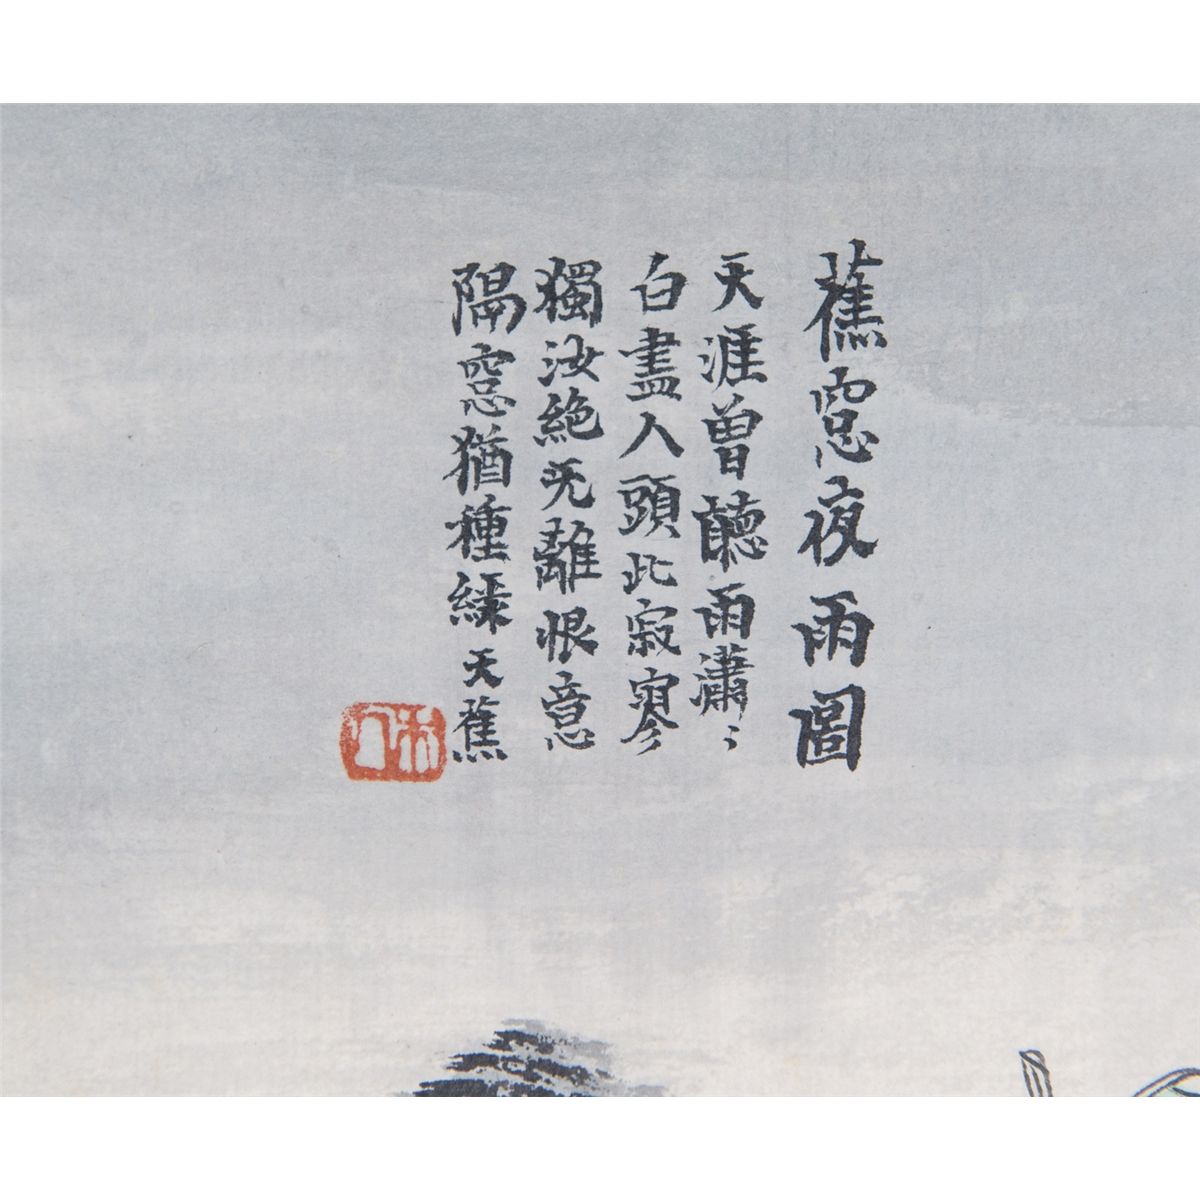 蕉窓夜雨圖
天涯曾聽雨瀟〻
白盡人頭此寂寥
獨汝絶无離恨意
隔窓猶種緑天蕉